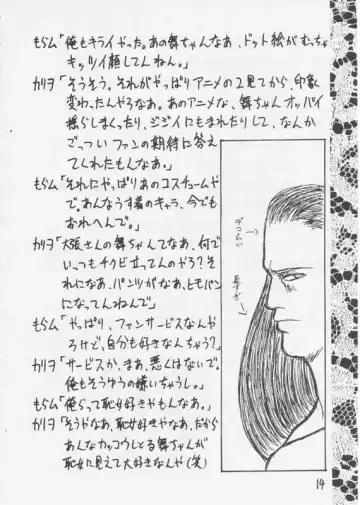 もらム「俺もキライやった。あの舞ちゃんなぁ、ドット絵がむっちゃ
キッツイ顔してんねん。」
カリヲ「そうそう。それがやっぱりアニメの2見てから、印象
変わったんやろなぁ。あのアニメな、舞ちゃんオッパイ
揺らしまくったり、ジジイにもまれたりして、なんか
ごっつい ファンの期待に答え
てくれたもんなぁ。」
もらム「それにやっぱりあのコスチュームや
で。あんなうす着のキャラ、今でも
おれへんで。」
カリヲ「大張さんの舞ちゃんてなぁ、何で
いっつもチクビ立ってんのやろ?そ
れになぁ、パンツがなぁ、ヒモパン
になってんねんで」
もらム「やっぱり、ファンサービスなんや
ろけど、自分も好きなんちゃう?」
カリヲ「サービスか、まぁ、悪くはないで。
俺もそうゆうの嫌いちゃうし。」
もらム「俺らって恥女好きやもんなぁ。」
カリヲ「そうやなぁ、恥女好きやなぁ、だから
あんなカッコウしとる舞ちゃんが
恥女に見えて大好きなんや(笑)
デコひろい→
長すぎ
14